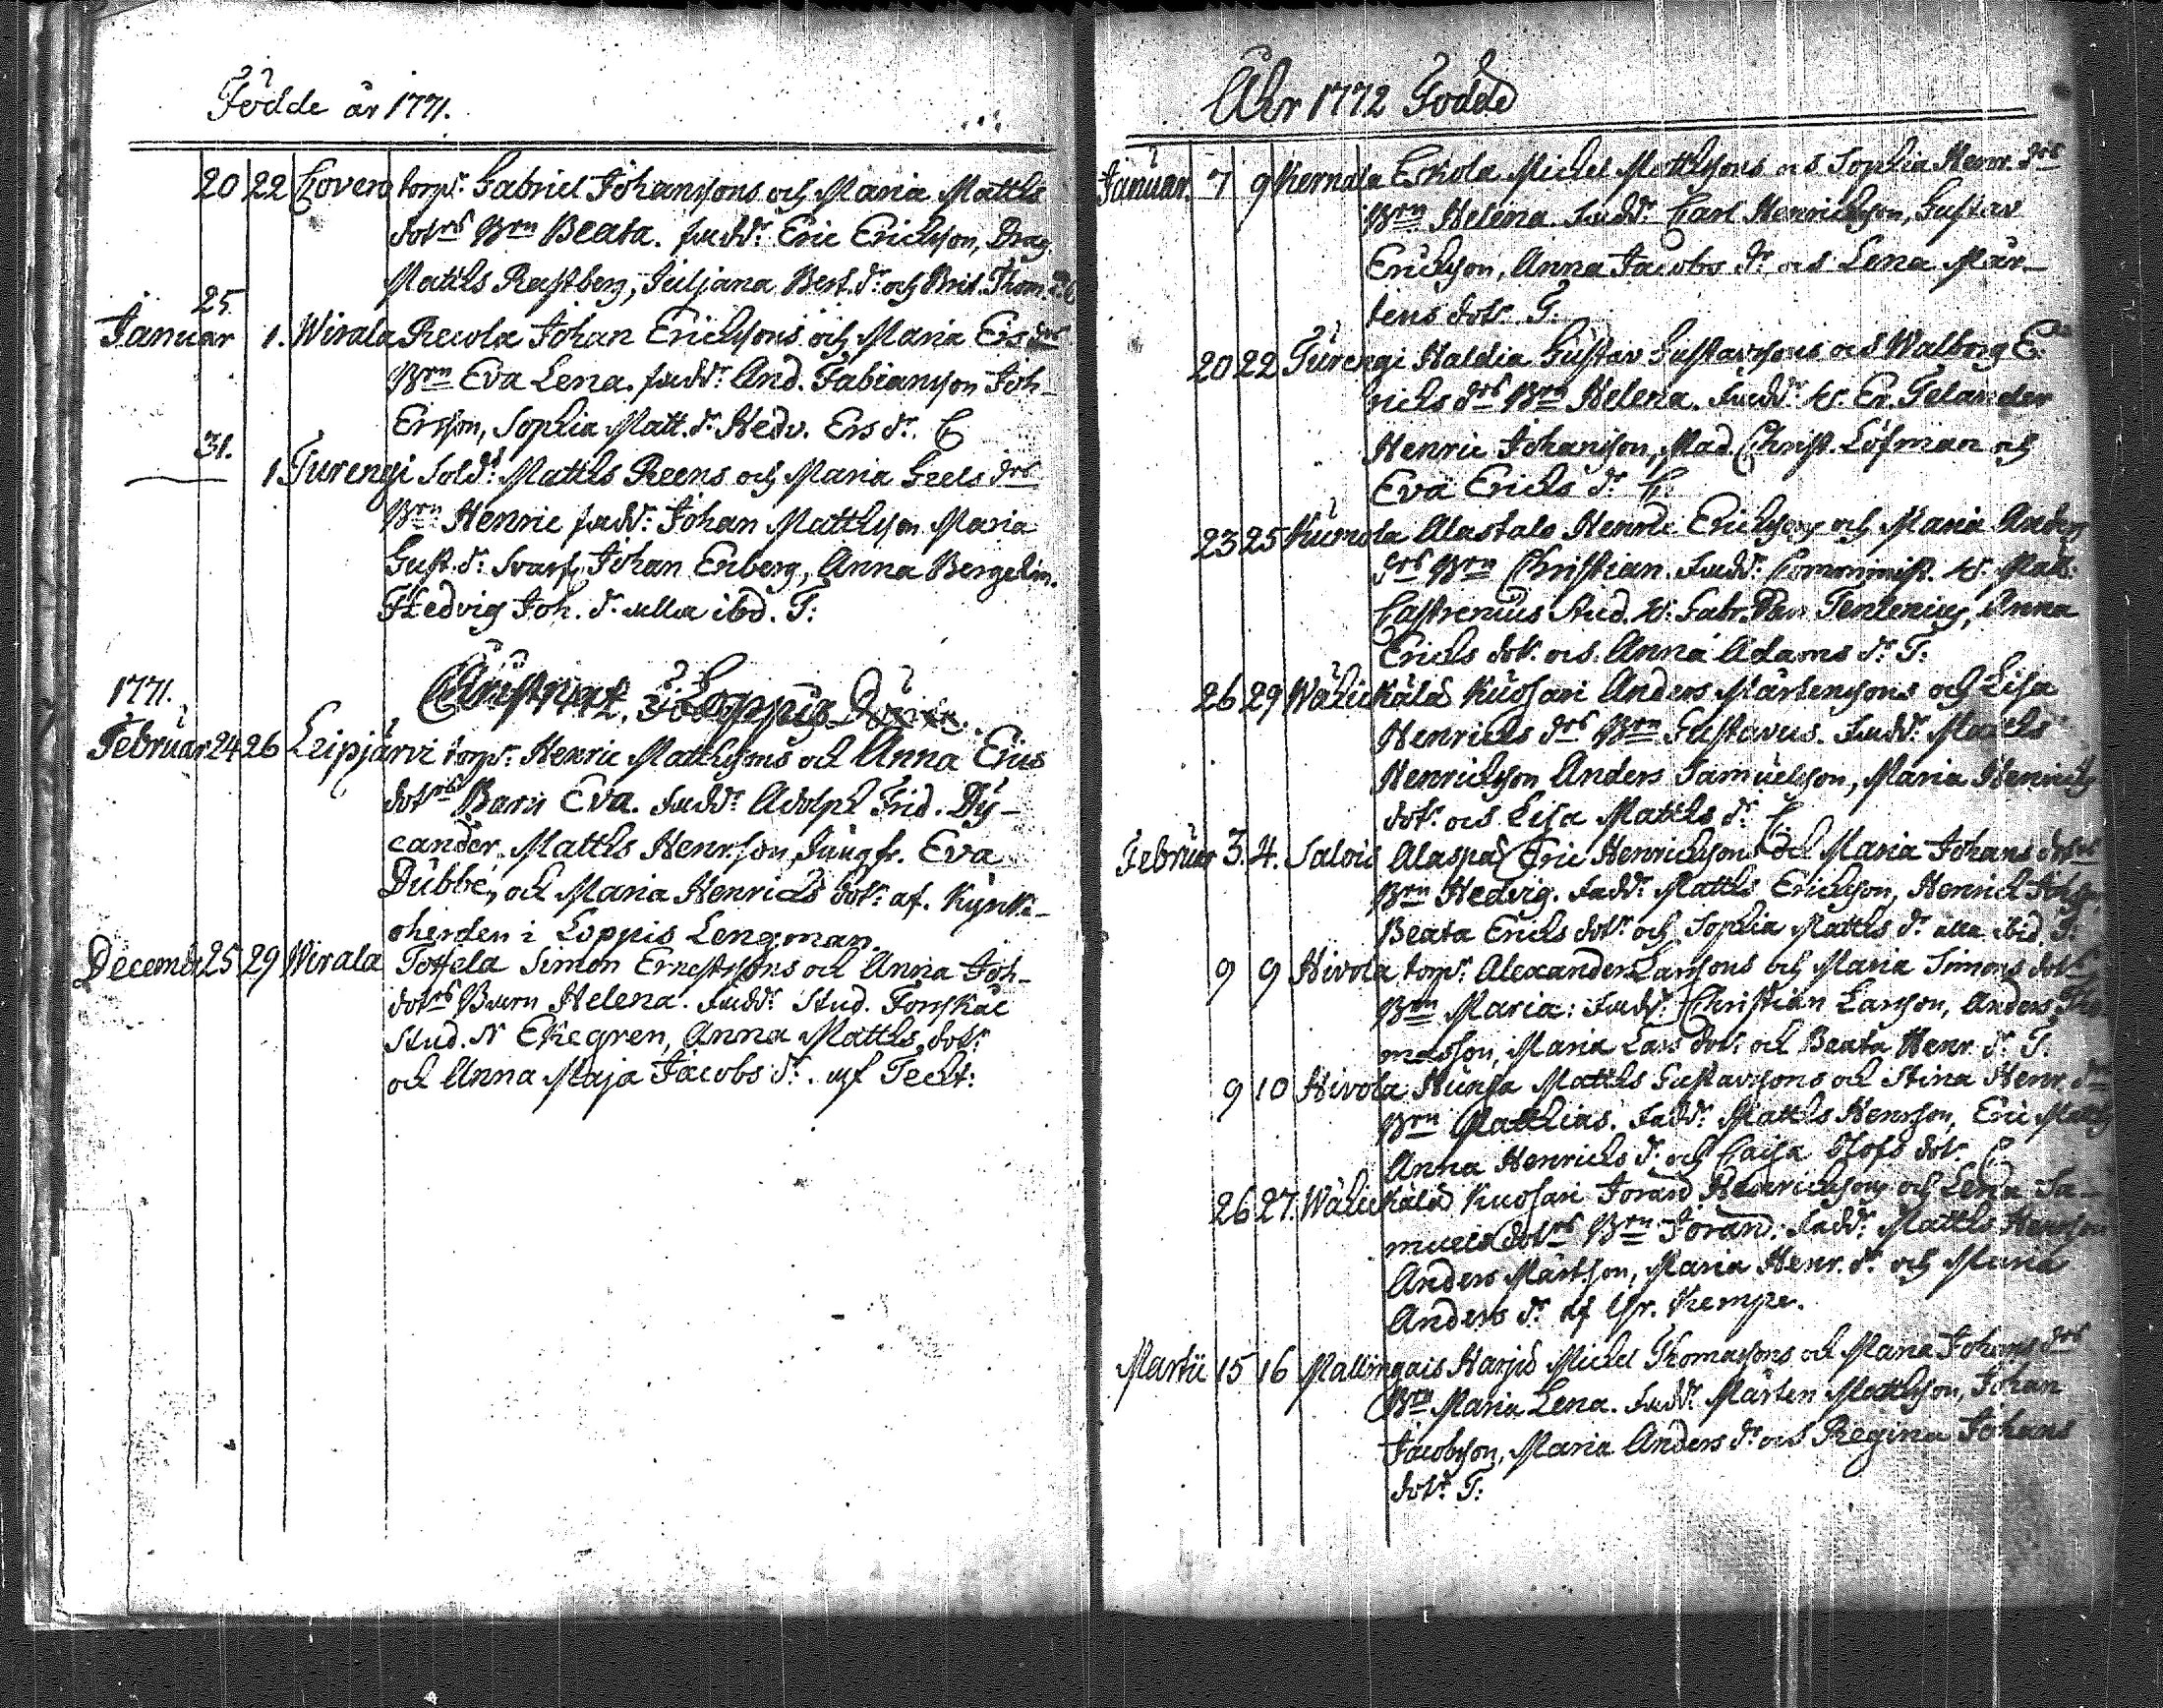 Födde år 1771.
20 22 Loven torp:r Gabriel Johanssons och Maria Matths
dot:rs B:rn Beata. fadd:r Eric Ericksson, Drag.
Matths Rastberg, Juljana Bert. d:r och Brit. Thom. d:r C
25.
Januar 1. Wirala Recola Johan Erickssons och Maria Ers d:rs
B:rn Eva Lena. fadd:r And. Fabiansson Joh-
Ersson, Sophia Matt. d:r Hedv. Ers d:r. C
31.
1 Turengi Sold:t Matths Reens och Maria Grels d:rs
B:rn Henric fadd:r Johan Matthsson Maria
Gust. d:r Svarf. Johan Enberg, Anna Bergelin.
Hedvig Joh. d:r alla ibd. T:
1771.
i Loppis
Februar 24 26 Leipjärvi torp:r Henric Matthssons och Anna Erics
dot:rs Barn Eva. fadd:r Adolph Frid. Dy-
cander, Matths Henr.sson, Jungfr. Eva
Dubbe, och Maria Henrichs dot:r af. Kyrko-
herden i Loppis Lengman.
Decembr 25 29 Wirala Tottela Simon Ernestssons och Anna Joh-
dot:rs Barn Helena. Fadd:r Stud. Forskåel
Stud. N Ekegren, Anna Matths dot:r
och Anna Maja Jacobs d:r. af Techt:
Åhr 1772 Födde
Januar. 7 9 Kernala Eskola Michel Matthssons och Sophia Henr. d:rs
B:rn Helena. Fadd:r Carl Henricksson, Gustav
Ericksson, Anna Jacobs d:r och Lena Mår-
tens dot:r T:
20 22 Turengi Haldia Gustav Gustavssons och Walborg E:
richs d:rs B:rn Helena. Fadd:r H. Er. Telander
Henric Johansson, Mad. Christ. Löfman och
Eva Erichs d:r C.
23 25 Kumola Alastalo Henric Ericksons och Maria Anders
d:rs B:rn Christian. Fadd:r Comminist. H. Matt:
Castrenius Stud. H: Gabr. Tentenius, Anna
Erichs dot:r och Anna Adams d:r T:
26 29 Wähickälä Kuosari Anders Mårtenssons och Lisa
Henrichs d:rs B:rn Gustavus. Fadd:r Michels
Henricksson Anders Samuelsson, Maria Henrichs
dot:r och Lisa Matths d:r C
Februar 3. 4. Salois Alaspää Eric Henrickssons och Maria Johans dot:rs
B:rn Hedvig. Fadd:r Matths Ericksson, Henrich Johs.
Beata Erichs dot:r och Sophia Matths d:r alla ibid. T:
9 9 Hivola torp:r Alexander Larssons och Maria Simons dot:rs
B:rn Maria: Fadd:r Christian Larsson, Anders Tho
masson, Maria Lars dot:r och Beata Henr. d:r T:
9 10 Hivola Hunsa Matths Gustavssons och Stina Henr. d:rs
B:rn Matthias. Fadd:r Matths Henrsson, Eric Matths
Anna Henrichs d:r och Caisa Olofs dot:r C
26 27. Wähickälä Kuosari Jöran Henrickssons och Lena Sa-
muels dot:rs B:rn Jöran. Fadd:r Matths Henrsson
Anders Mårt.son, Maria Henr. d:r och Maria
Anders d:r af Hr. Kempe.
Martii 15 16 Mallingais Harju Michel Thomassons och Maria Johans d:rs
B:rn Maria Lena. Fadd:r Mårten Matthsson, Johan
Jacobsson, Maria Anders d:r och Regina Johans
dot:r T: